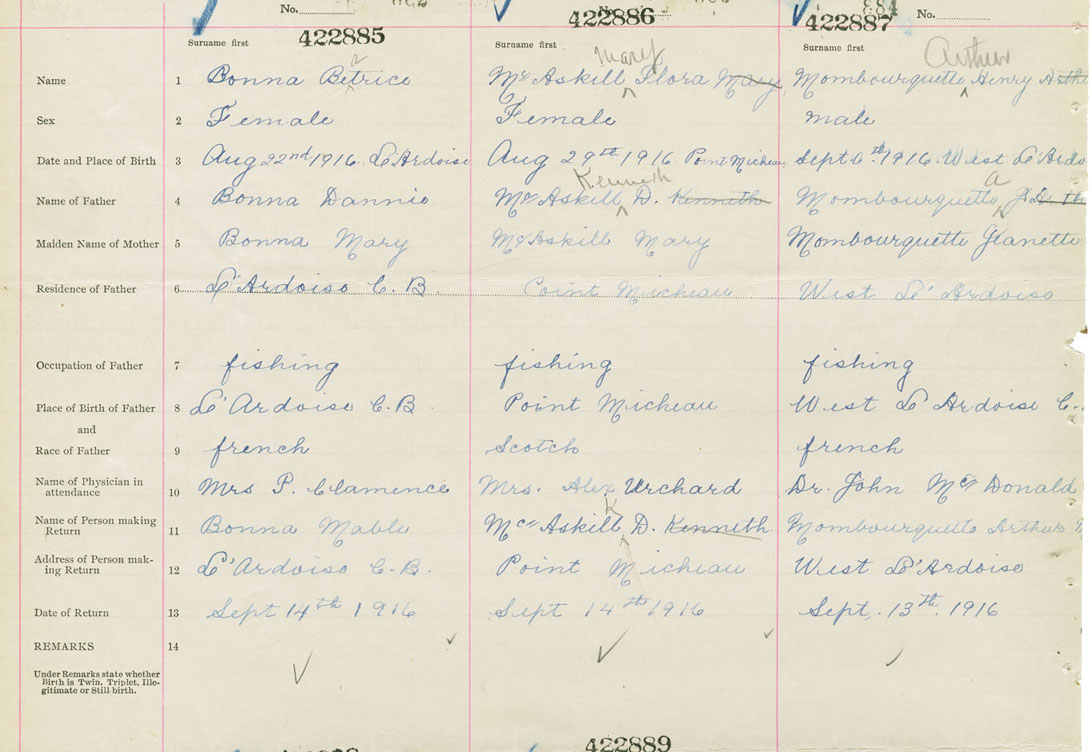 No.
No.
422885
422886
422887
884
Surname first
Surname first
Surname first
Name 1 Bonna Betrice
a
McAskill Flora Mary
Mary
Mombourquette Henry
Arthur
Sex 2 Female Female male
Date and Place of Birth 3 Aug 22nd 1916. L'Ardoise Aug 29th 1916. Point Micheau Sept 6th 1916. West L'Ardo
Name of Father 4 Bonna Dannie McAskill D. Kenneth Mombourquette
Kenneth
a
Maiden Name of Mother 5 Bonna Mary McAskill Mary Mombourquette Jeanette
Residence of Father 6 L'Ardoise C.B. Point Micheau West L'Ardoise
Occupation of Father 7 fishing fishing fishing
Place of Birth of Father 8 L'Ardoise C.B. Point Micheau West L'Ardoise C.
and
Race of Father 9 french Scotch french
Name of Physician in
attendance 10 Mrs P. Clamence Mrs. Alex Urchard Dr. John McDonald
Name of Person making
Return 11 Bonna Mable McAskill D. Kenneth Mombourquette Arthur
K
Address of Person mak-
ing Return 12 L'Ardoise C.B. Point Micheau West L'Ardoise
Date of Return 13 Sept 14th 1916 Sept 14th 1916 Sept. 13th. 1916
REMARKS 14
Under Remarks state whether
Birth is Twin, Triplet, Ille-
gitimate or Still birth.
422889